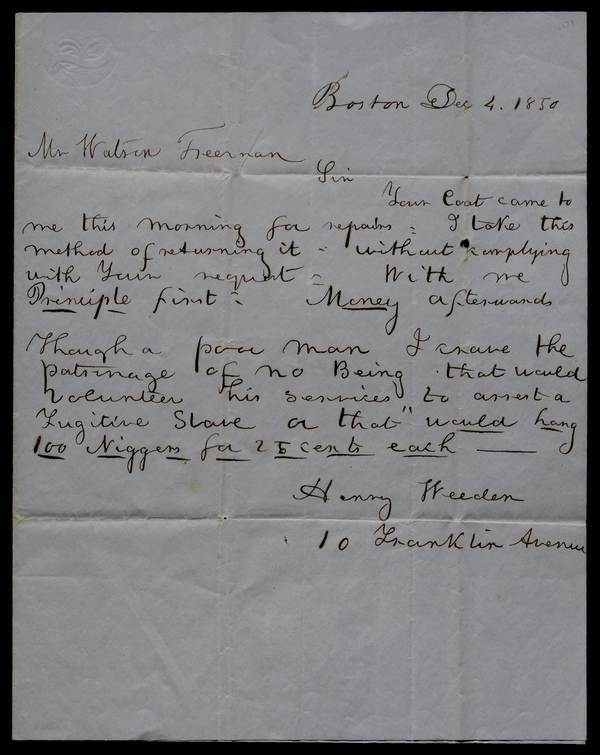 Boston Dec 4. 1850
Mr Watson Freeman
Sir
Your Coat came to
me this morning for repairs = I take this
method of returning it = without complying
with Your request = With me
Principle first = Money afterwards
Though a poor man I crave the
patronage of no Being that would
volunteer his services to arrest a
Fugitive Slave or that "would hang
100 Niggers for 25 cents each —
Henry Weeden
10 Franklin Avenue